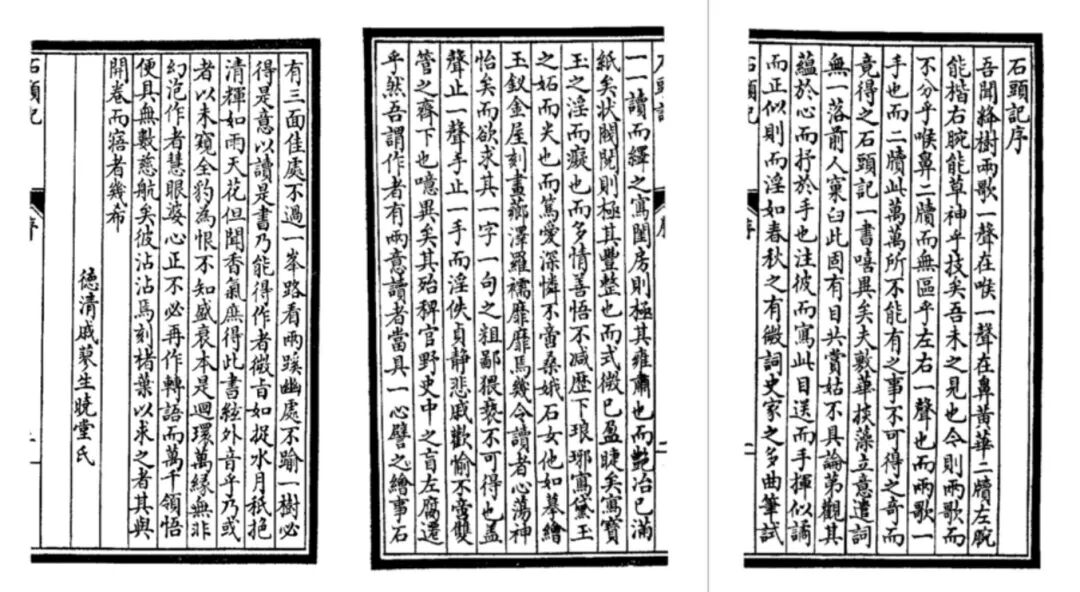 石頭記序
吾聞絳樹兩歌一聲在喉一聲在鼻黃華二牘左腕
能楷右腕能草神乎技矣吾未之見也今則兩歌而
不分乎喉鼻二牘而無區乎左右一聲也而兩歌一
手也而二牘此萬萬所不能有之事不可得之奇而
竟得之石頭記一書嘻異矣夫敷華掞藻立意遣詞
無一落前人窠臼此固有目共賞姑不具論第觀其
蘊於心而抒於手也注彼而寫此目送而手揮似譎
而正似則而淫如春秋之有微詞史家之多曲筆試
一一讀而繹之寫閨房則極其雍肅也而艷冶已滿
紙矣狀閥閱則極其豐整也而式微已盈睫矣寫寶
玉之淫而癡也而多情善悟不减歷下琅琊寫黛玉
之妬而尖也而篤愛深憐不啻桑娥石女他如摹繪
玉釵金屋刻畫薌澤羅襦靡靡焉幾令讀者心蕩神
怡矣而欲求其一字一句之粗鄙猥褻不可得也盖
聲止一聲手止一手而淫佚貞静悲戚歡愉不啻雙
管之齊下也噫異矣其殆稗官野史中之盲左腐遷
乎然吾謂作者有兩意讀者當具一心譬之繪事石
有三面佳處不過一峯路看兩蹊幽處不踰一樹必
得是意以讀是書乃能得作者微旨如捉水月秖挹
清輝如雨天花但聞香氣庶得此書絃外音乎乃或
者以未窺全豹為恨不知盛衰本是迴環萬緣無非
幻泡作者慧眼婆心正不必再作轉語而萬千領悟
便具無數慈航矣彼沾沾焉刻楮葉以求之者其與
開卷而寤者幾希
德清戚蓼生曉堂氏